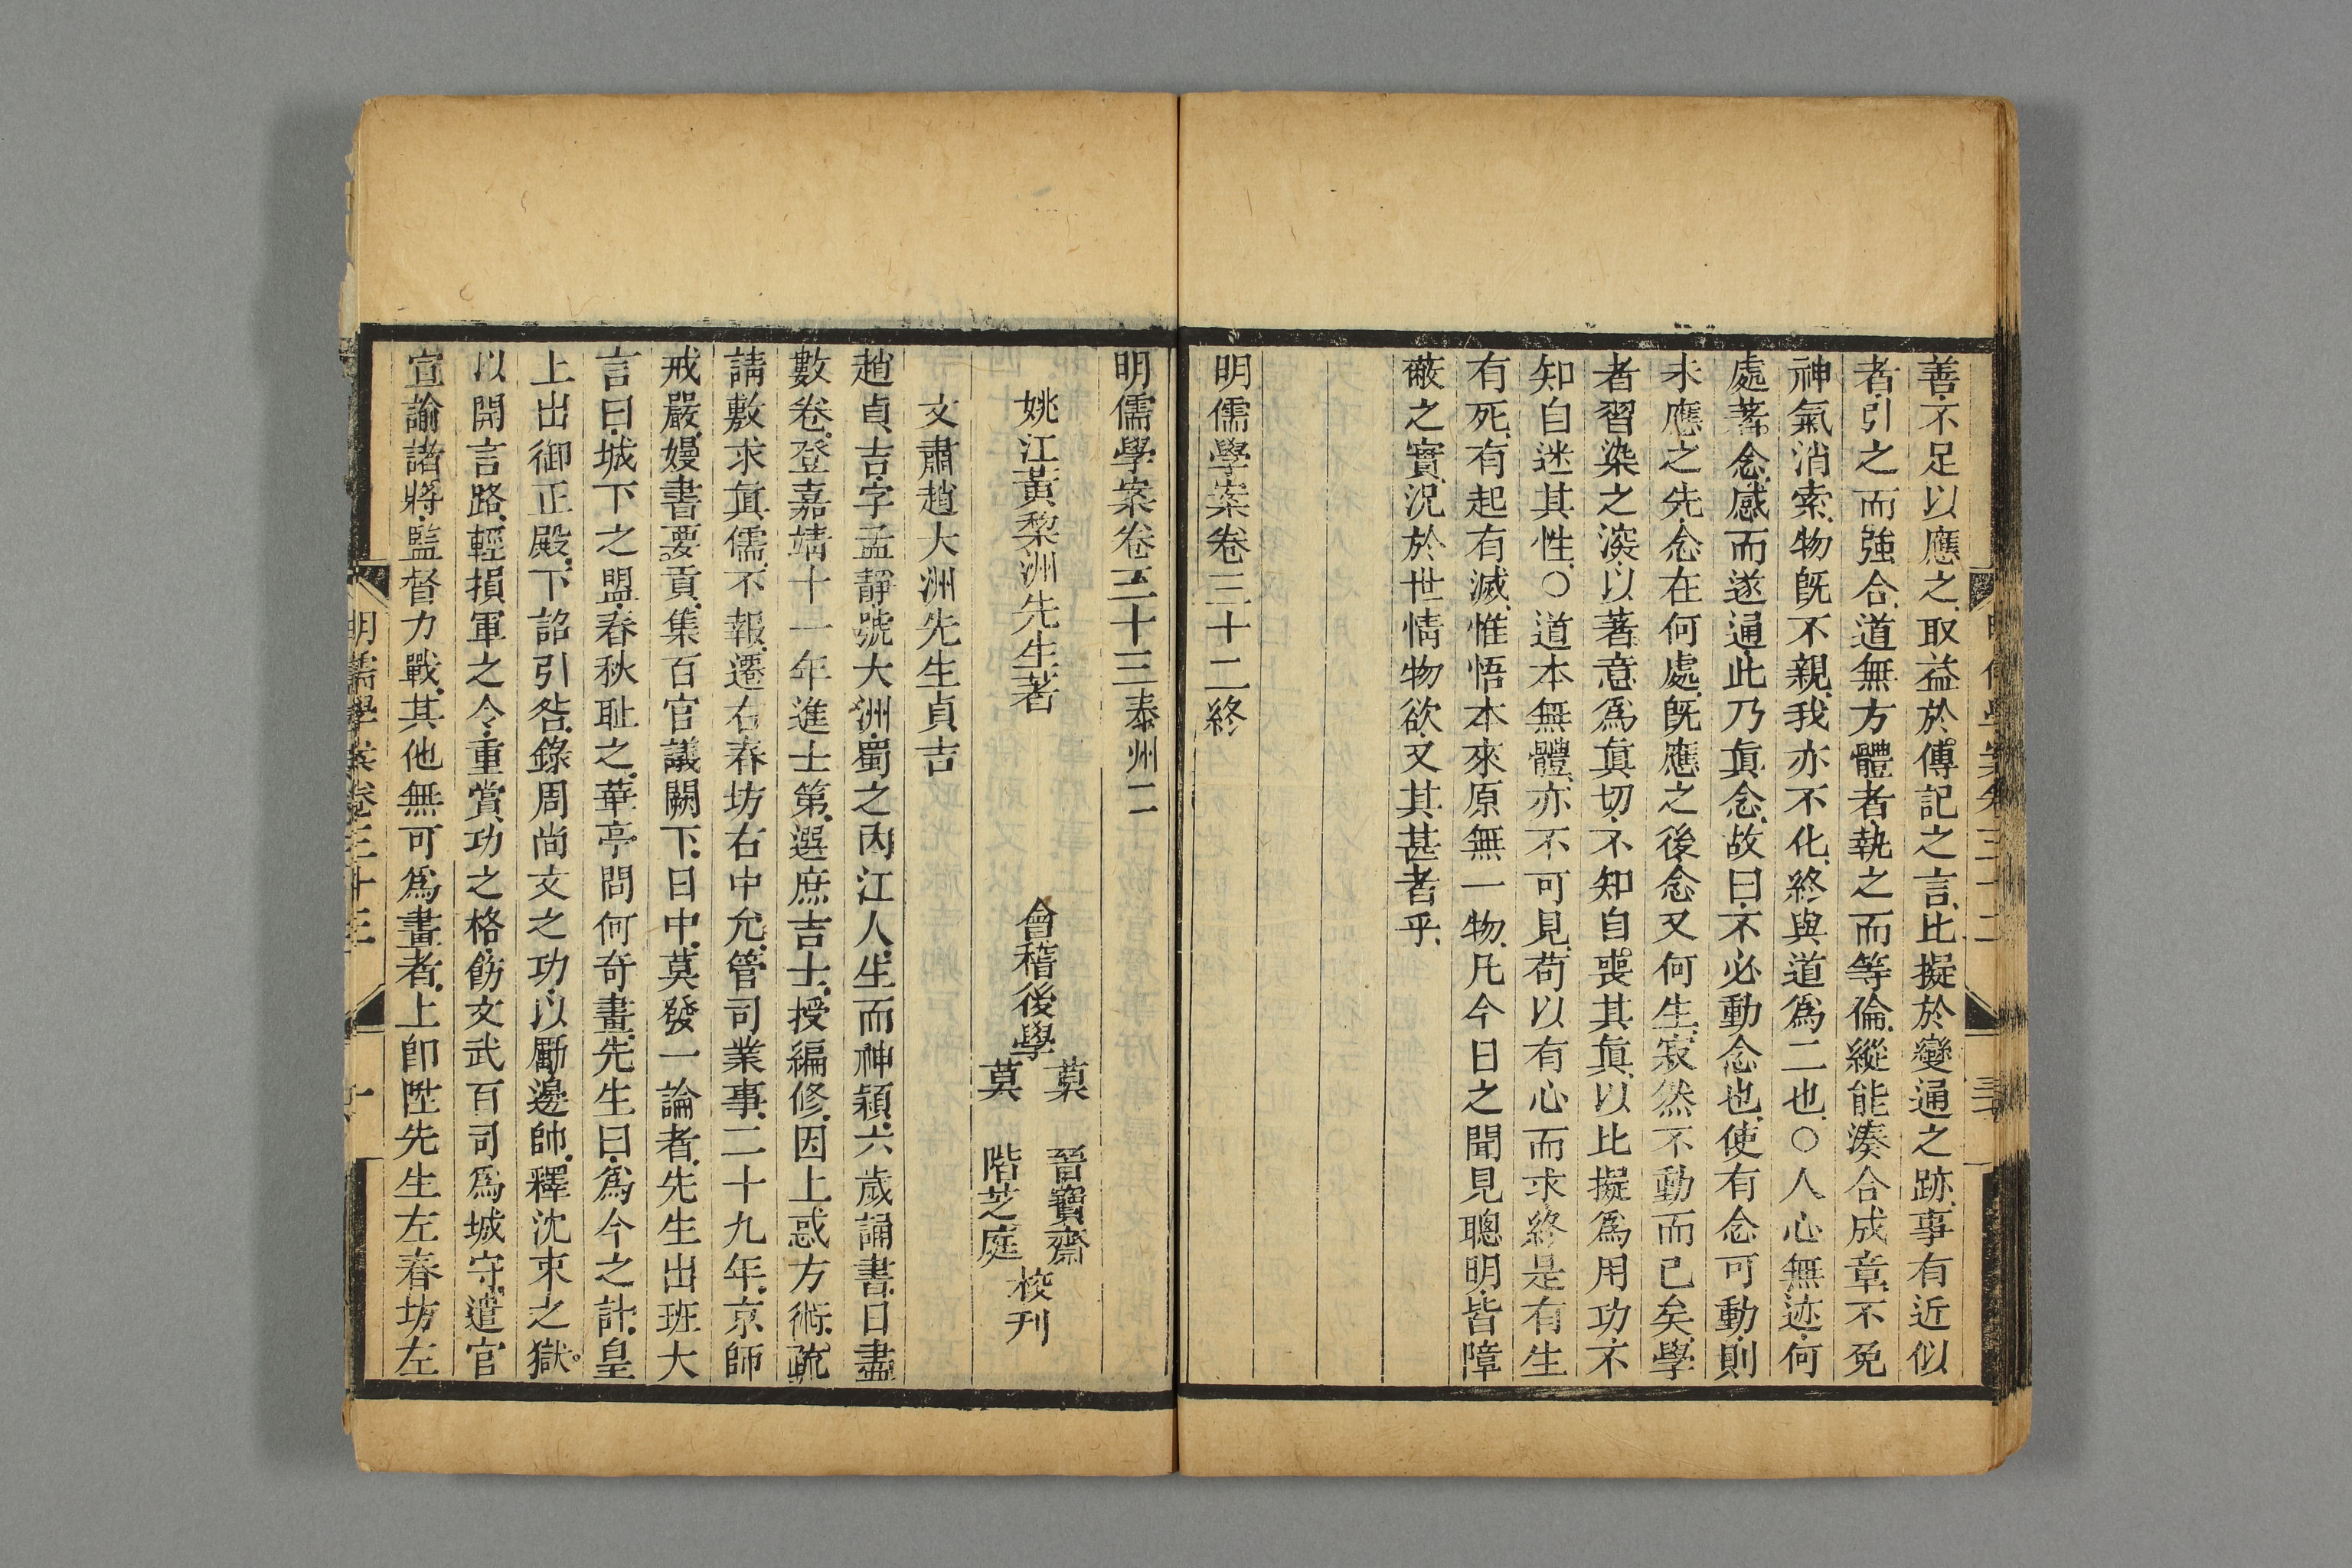 善不足以應之取益於傳記之言比擬於變通之跡事有近似
者引之而強合道無方體者執之而等倫縱能湊合成章不免
神氣消索物旣不親我亦不化終與道爲二也○人心無迹何
處著念感而遂通此乃眞念故曰不必動念也使有念可動則
未應之先念在何處旣應之後念又何生寂然不動而已矣學
者習染之深以著意爲眞切不知自喪其眞以比擬爲用功不
知自迷其性○道本無體亦不可見苟以有心而求終是有生
有死有起有滅惟悟本來原無一物凡今日之聞見聰明皆障
蔽之實況於世情物欲又其甚者乎
明儒學案卷三十二終
明儒學案卷三十三泰州二
姚江黃黎洲先生著
會稽後學
莫 晉寶齋
莫 階芝庭
校刊
文肅趙大洲先生貞吉
趙貞吉字孟靜號大洲蜀之內江人生而神穎六歲誦書日盡
數卷登嘉靖十一年進士第選庶吉士授編修因上惑方術疏
請敷求眞儒不報遷右春坊右中允管司業事二十九年京師
戒嚴嫚書要貢集百官議闕下日中莫發一論者先生出班大
言曰城下之盟春秋恥之華亭問何奇畫先生曰爲今之計皇
上出御正殿下詔引咎錄周尚文之功以勵邊帥釋沈束之獄
以開言路輕損軍之令重賞功之格飭文武百司爲城守遣官
宣諭諸將監督力戰其他無可爲畫者上卽陞先生左春坊左
明儒學案卷三十三
一